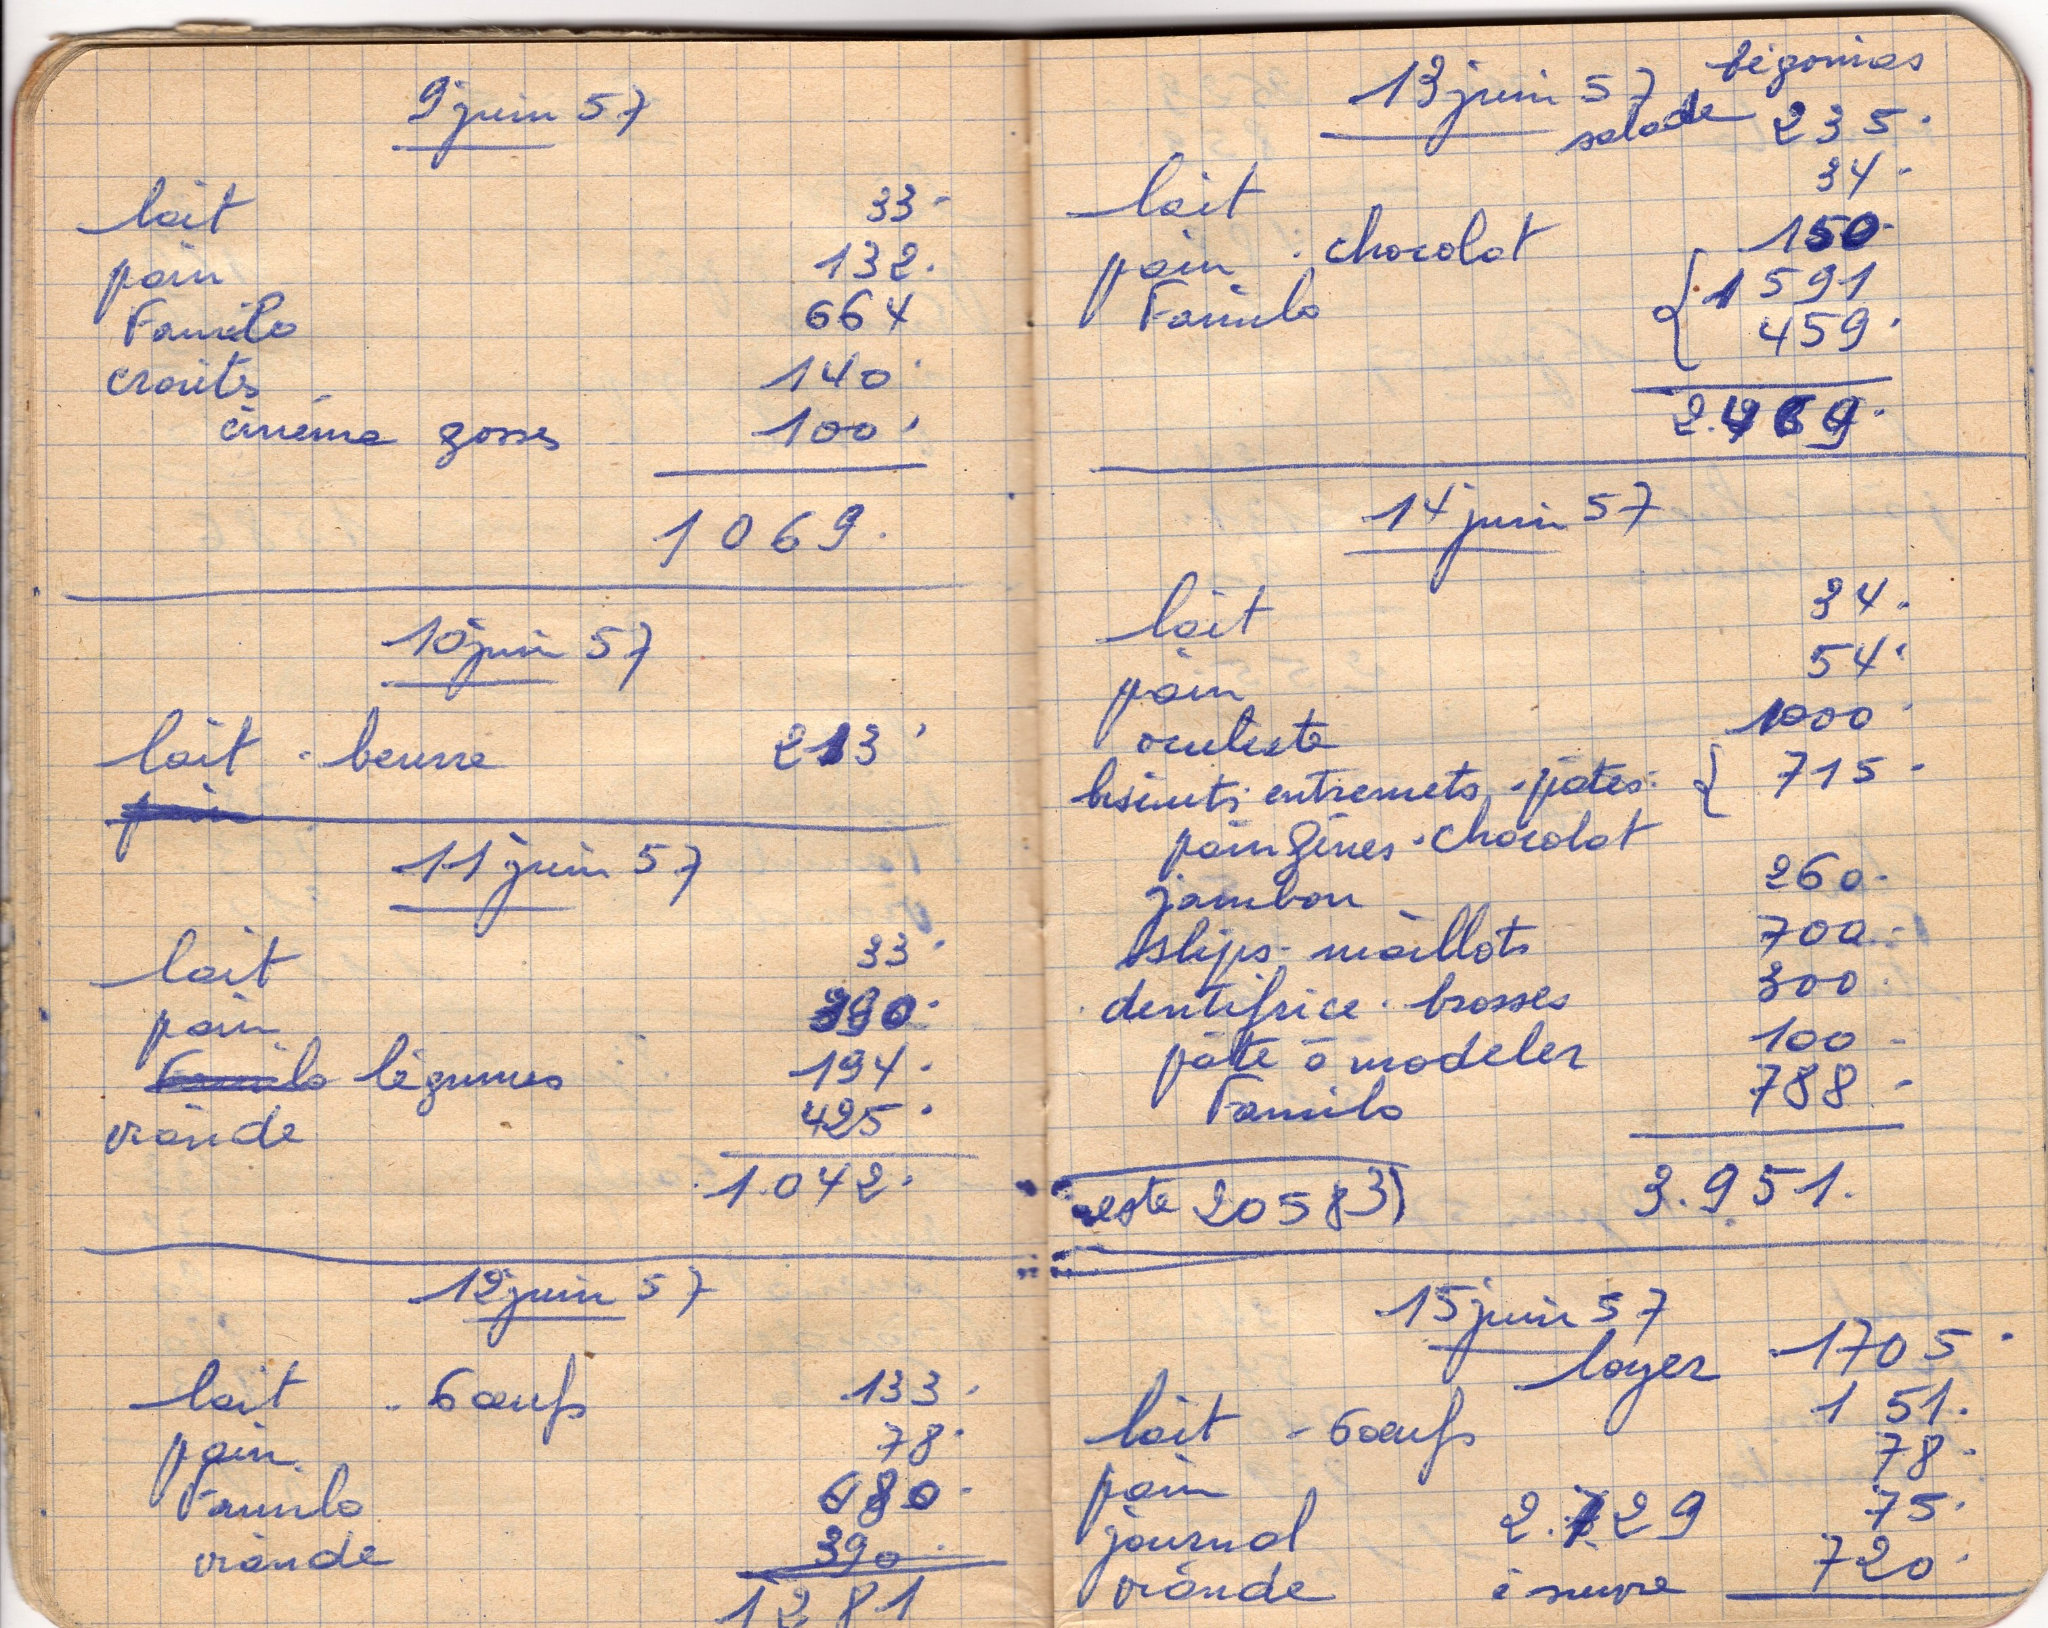 9 juin 57
lait 33.
pain 132.
Familo 664
croûtes 140.
cinéma gosses 100.
1069.
10 juin 57
lait - beurre 213.
pain
11 juin 57
lait 33.
pain 390.
Familo légumes 194.
viande 425.
1.042.
12 juin 57
lait - 6 œufs 133.
pain 78.
Familo 680.
viande 390.
1281
13 juin 57 bégonias
salade 235.
lait 34.
pain - chocolat 150.
Familo { 1591
459.
2.469.
14 juin 57
lait 34.
pain 54.
oculiste 1000.
biscuits entremets - pâtes { 715.
pain gênes - chocolat
jambon 260.
slips - maillots 700.
dentifrice - brosses 300.
pâte à modeler 100.
Familo 788.
reste 20583) 3.951.
15 juin 57
loyer 1705.
lait - 6 œufs 151.
pain 78.
journal 2.729 75.
viande à suivre 720.